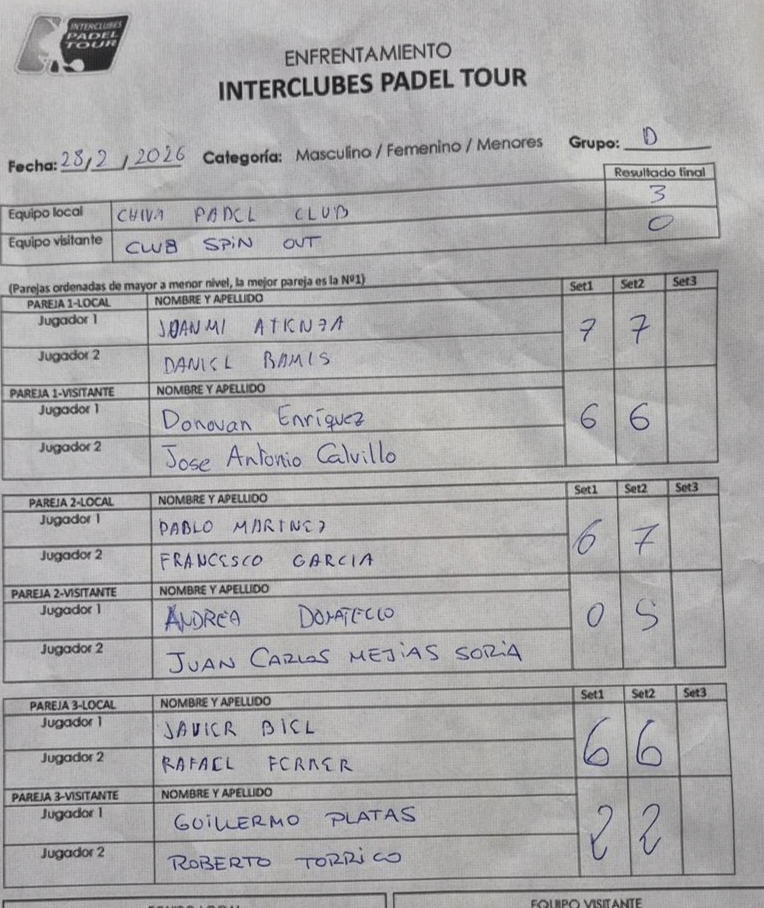 INTERCLUBES
PADEL
TOUR
ENFRENTAMIENTO
INTERCLUBES PADEL TOUR
Fecha: 28/2/2026 Categoría: Masculino / Femenino / Menores Grupo: D
Resultado final
Equipo local CHIVA PADEL CLUB 3
Equipo visitante CLUB SPIN OUT 0
(Parejas ordenadas de mayor a menor nivel, la mejor pareja es la Nº1) Set1 Set2 Set3
PAREJA 1-LOCAL NOMBRE Y APELLIDO
Jugador 1 JUANMI ATIENZA 7 7
Jugador 2 DANIEL RAMIS
PAREJA 1-VISITANTE NOMBRE Y APELLIDO
Jugador 1 Donovan Enríquez 6 6
Jugador 2 Jose Antonio Calvillo
PAREJA 2-LOCAL NOMBRE Y APELLIDO Set1 Set2 Set3
Jugador 1 PABLO MARTINEZ 6 7
Jugador 2 FRANCESCO GARCIA
PAREJA 2-VISITANTE NOMBRE Y APELLIDO
Jugador 1 ANDREA DONATELLO 0 5
Jugador 2 JUAN CARLOS MEJIAS SORIA
PAREJA 3-LOCAL NOMBRE Y APELLIDO Set1 Set2 Set3
Jugador 1 JAVIER BIEL 6 6
Jugador 2 RAFAEL FERRER
PAREJA 3-VISITANTE NOMBRE Y APELLIDO
Jugador 1 GUILLERMO PLATAS 2 2
Jugador 2 ROBERTO TORRICO
EQUIPO LOCAL EQUIPO VISITANTE